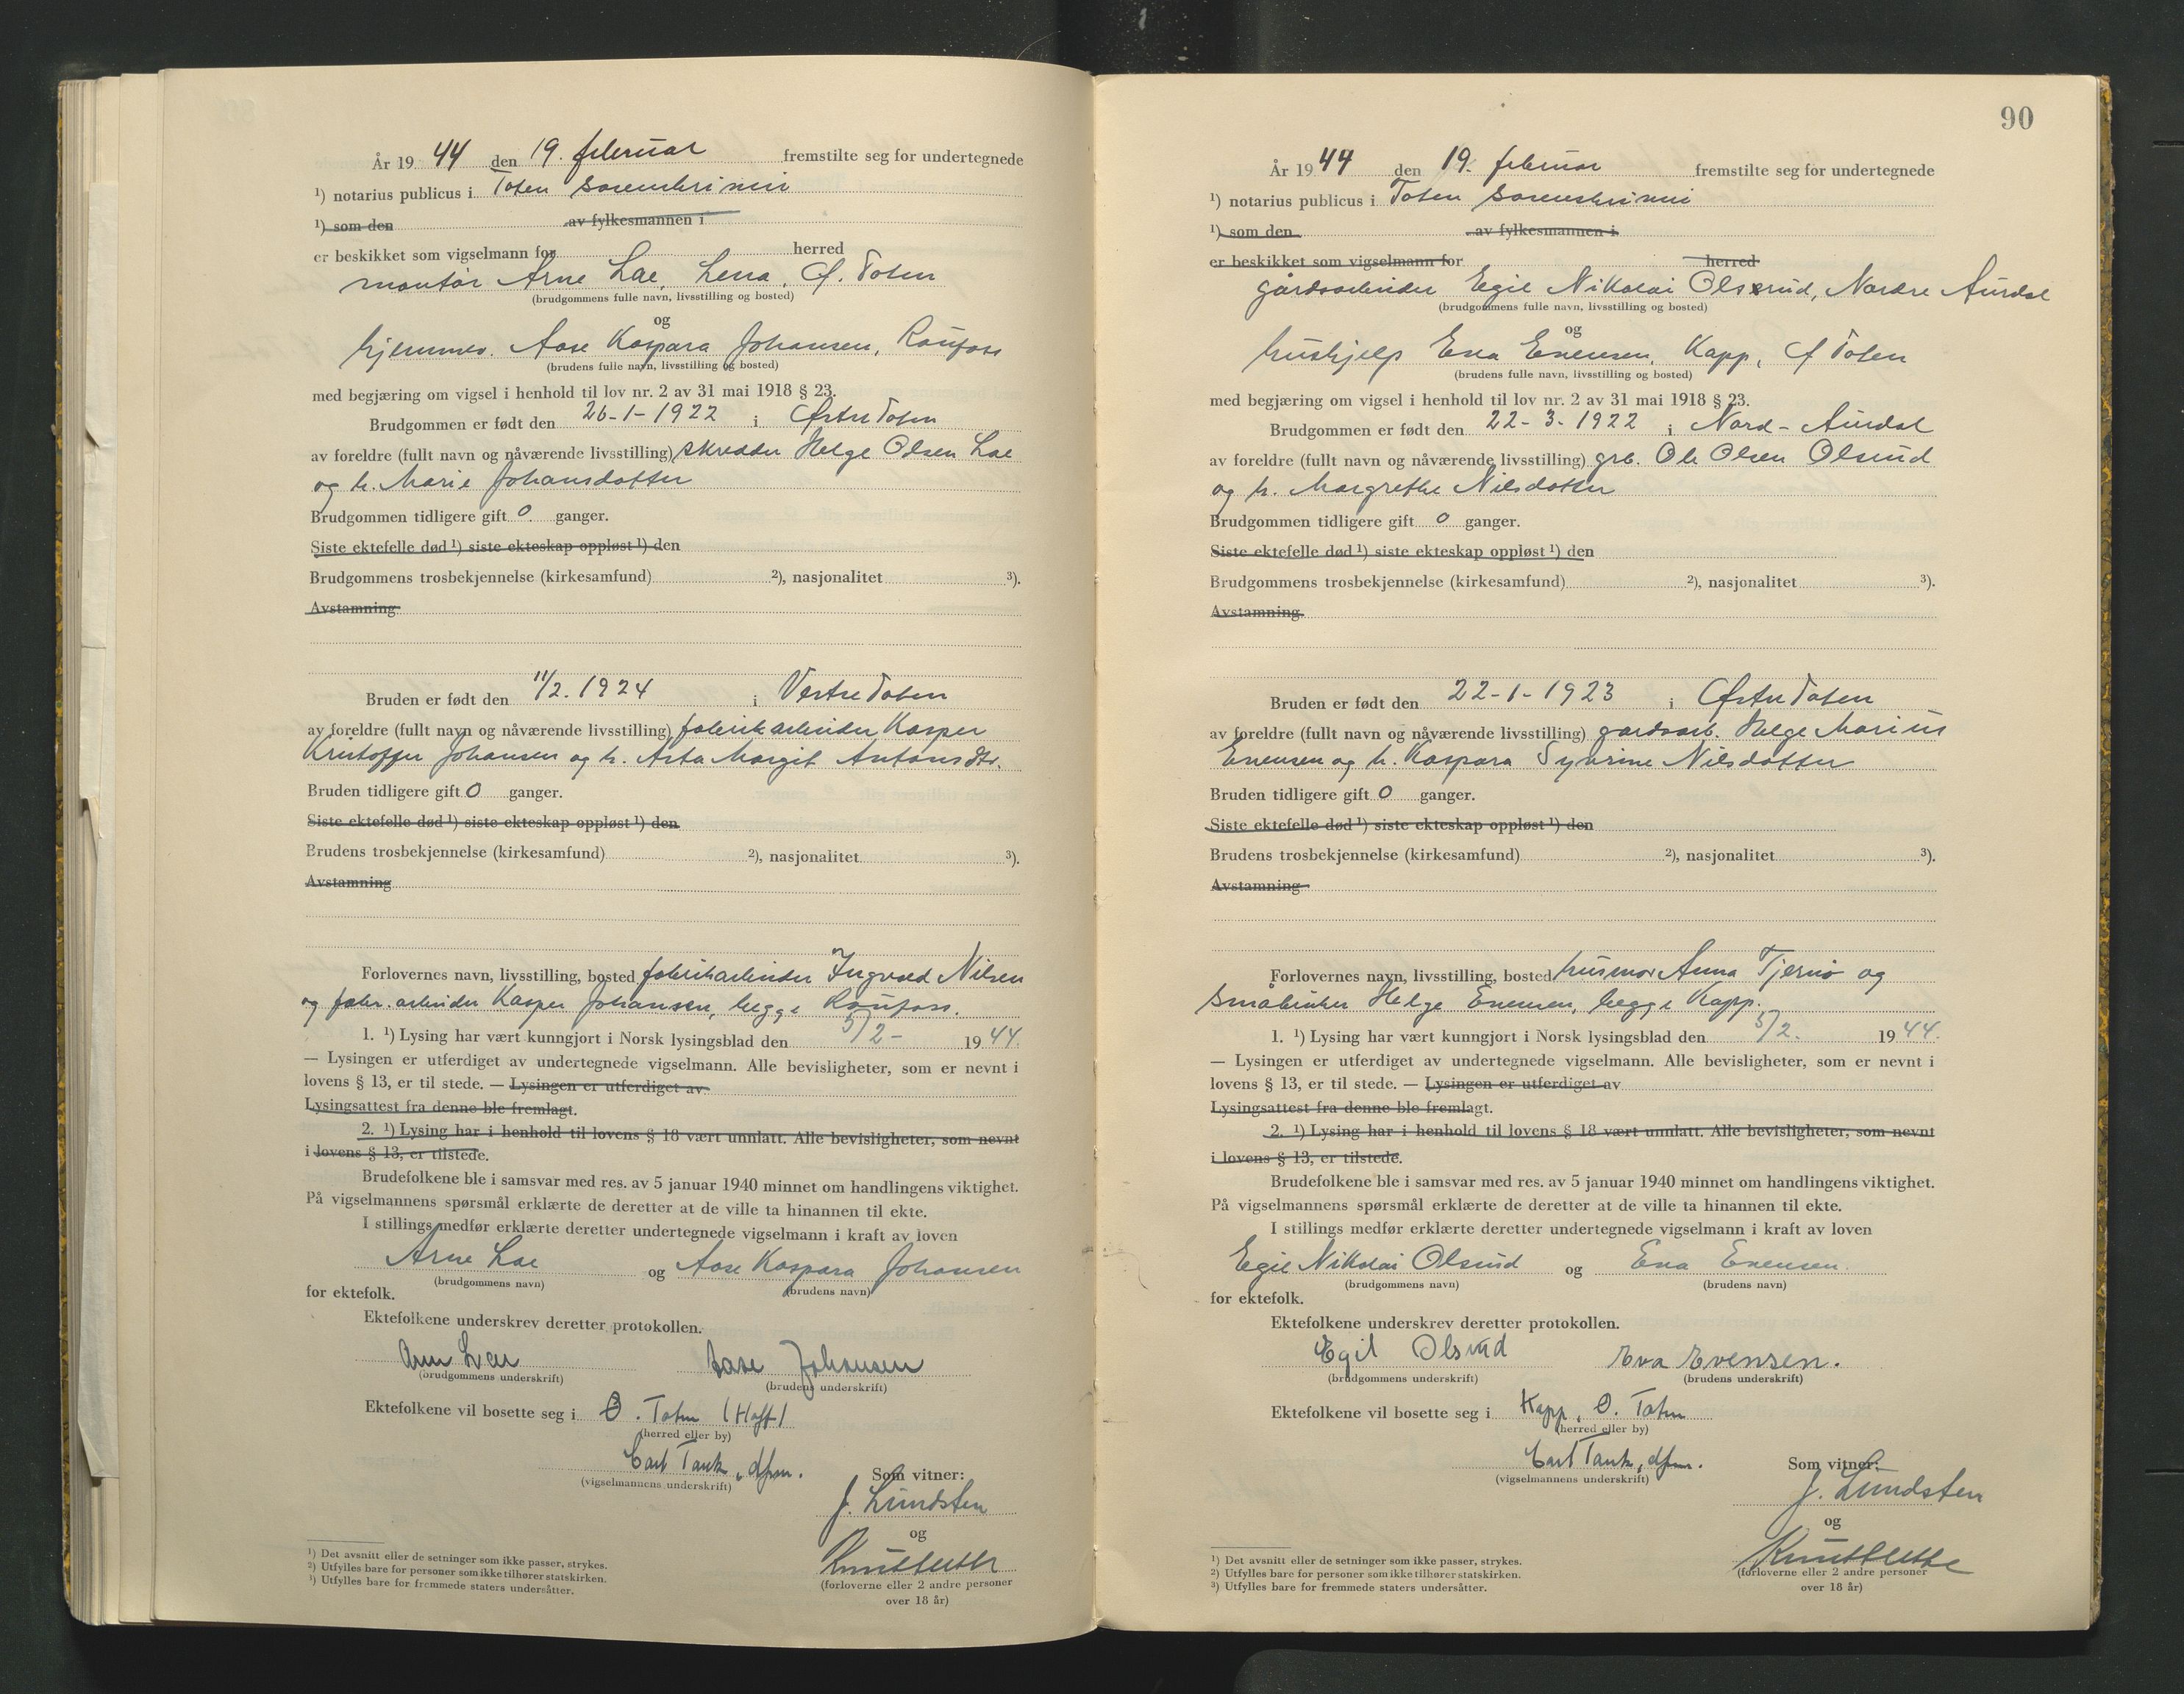 År 1944 den 19. februar fremstilte seg for undertegnede
¹) notarius publicus i Toten sorenskriveri
¹) som den av fylkesmannen i
er beskikket som vigselmann for herred
montør Arne Lae, Lena, Ø. Toten
(brudgommens fulle navn, livsstilling og bosted)
og
hjemmev. Aase Kaspara Johansen, Raufoss
(brudens fulle navn, livsstilling og bosted)
med begjæring om vigsel i henhold til lov nr. 2 av 31 mai 1918 § 23.
Brudgommen er født den 26-1-1922 i Østre Toten
av foreldre (fullt navn og nåværende livsstilling) skredder Helge Olsen Lae
og h. Marie Johansdatter
Brudgommen tidligere gift 0 ganger.
Siste ektefelle død ¹) siste ekteskap oppløst ¹) den
Brudgommens trosbekjennelse (kirkesamfund) ²), nasjonalitet ³).
Avstamning
Bruden er født den 11/2. 1924 i Vestre Toten
av foreldre (fullt navn og nåværende livsstilling) fabrikkarbeider Kasper
Kristoffer Johansen og h. Asta Margit Antonsdtr.
Bruden tidligere gift 0 ganger.
Siste ektefelle død ¹) siste ekteskap oppløst ¹) den
Brudens trosbekjennelse (kirkesamfund) ²), nasjonalitet ³).
Avstamning
Forlovernes navn, livsstilling, bosted fabrikkarbeider Ingvald Nilsen
og fabr. arbeider Kasper Johansen, begge Raufoss.
1. ¹) Lysing har vært kunngjort i Norsk lysingsblad den 5/2- 1944.
— Lysingen er utferdiget av undertegnede vigselmann. Alle bevisligheter, som er nevnt i
lovens § 13, er til stede. — Lysingen er utferdiget av
Lysingsattest fra denne ble fremlagt.
2. ¹) Lysing har i henhold til lovens § 18 vært unnlatt. Alle bevisligheter, som nevnt
i lovens § 13, er tilstede.
Brudefolkene ble i samsvar med res. av 5 januar 1940 minnet om handlingens viktighet.
På vigselmannens spørsmål erklærte de deretter at de ville ta hinannen til ekte.
I stillings medfør erklærte deretter undertegnede vigselmann i kraft av loven
Arne Lae og Aase Kaspara Johansen
(brudgommens navn) (brudens navn)
for ektefolk.
Ektefolkene underskrev deretter protokollen.
Arne Lae Aase Johansen
(brudgommens underskrift) (brudens underskrift)
Ektefolkene vil bosette seg i Ø. Toten (Hoff)
(herred eller by)
Carl Tank, dfm.
(vigselmannens underskrift)
Som vitner:
J. Lundsten
og
(forloverne eller 2 andre personer
over 18 år)
¹) Det avsnitt eller de setninger som ikke passer, strykes.
²) Utfylles bare for personer som ikke tilhører statskirken.
³) Utfylles bare for fremmede staters undersåtter.
90
År 1944 den 19. februar fremstilte seg for undertegnede
¹) notarius publicus i Toten sorenskriveri
¹) som den av fylkesmannen i
er beskikket som vigselmann for herred
gårdsarbeider Egil Nikolai Olsrud, Nordre Aurdal
(brudgommens fulle navn, livsstilling og bosted)
og
hushjelp Eva Evensen, Kapp, Ø Toten
(brudens fulle navn, livsstilling og bosted)
med begjæring om vigsel i henhold til lov nr. 2 av 31 mai 1918 § 23.
Brudgommen er født den 22-3-1922 i Nord-Aurdal
av foreldre (fullt navn og nåværende livsstilling) grb. Ole Olsen Olsrud
og h. Margrethe Nilsdatter
Brudgommen tidligere gift 0 ganger.
Siste ektefelle død ¹) siste ekteskap oppløst ¹) den
Brudgommens trosbekjennelse (kirkesamfund) ²), nasjonalitet ³).
Avstamning
Bruden er født den 22-1-1923 i Østre Toten
av foreldre (fullt navn og nåværende livsstilling) gardsarb. Helge Marius
Evensen og h. Kaspara Syverine Nilsdatter
Bruden tidligere gift 0 ganger.
Siste ektefelle død ¹) siste ekteskap oppløst ¹) den
Brudens trosbekjennelse (kirkesamfund) ²), nasjonalitet ³).
Avstamning
Forlovernes navn, livsstilling, bosted husmor Anna Tjernø og
småbruker Helge Evensen, begge Kapp.
1. ¹) Lysing har vært kunngjort i Norsk lysingsblad den 5/2. 1944.
— Lysingen er utferdiget av undertegnede vigselmann. Alle bevisligheter, som er nevnt i
lovens § 13, er til stede. — Lysingen er utferdiget av
Lysingsattest fra denne ble fremlagt.
2. ¹) Lysing har i henhold til lovens § 18 vært unnlatt. Alle bevisligheter, som nevnt
i lovens § 13, er tilstede.
Brudefolkene ble i samsvar med res. av 5 januar 1940 minnet om handlingens viktighet.
På vigselmannens spørsmål erklærte de deretter at de ville ta hinannen til ekte.
I stillings medfør erklærte deretter undertegnede vigselmann i kraft av loven
Egil Nikolai Olsrud og Eva Evensen.
(brudgommens navn) (brudens navn)
for ektefolk.
Ektefolkene underskrev deretter protokollen.
Egil Olsrud Eva Evensen.
(brudgommens underskrift) (brudens underskrift)
Ektefolkene vil bosette seg i Kapp, Ø. Toten
(herred eller by)
Carl Tank, dfm.
(vigselmannens underskrift)
Som vitner:
J. Lundsten
og
(forloverne eller 2 andre personer
over 18 år)
¹) Det avsnitt eller de setninger som ikke passer, strykes.
²) Utfylles bare for personer som ikke tilhører statskirken.
³) Utfylles bare for fremmede staters undersåtter.